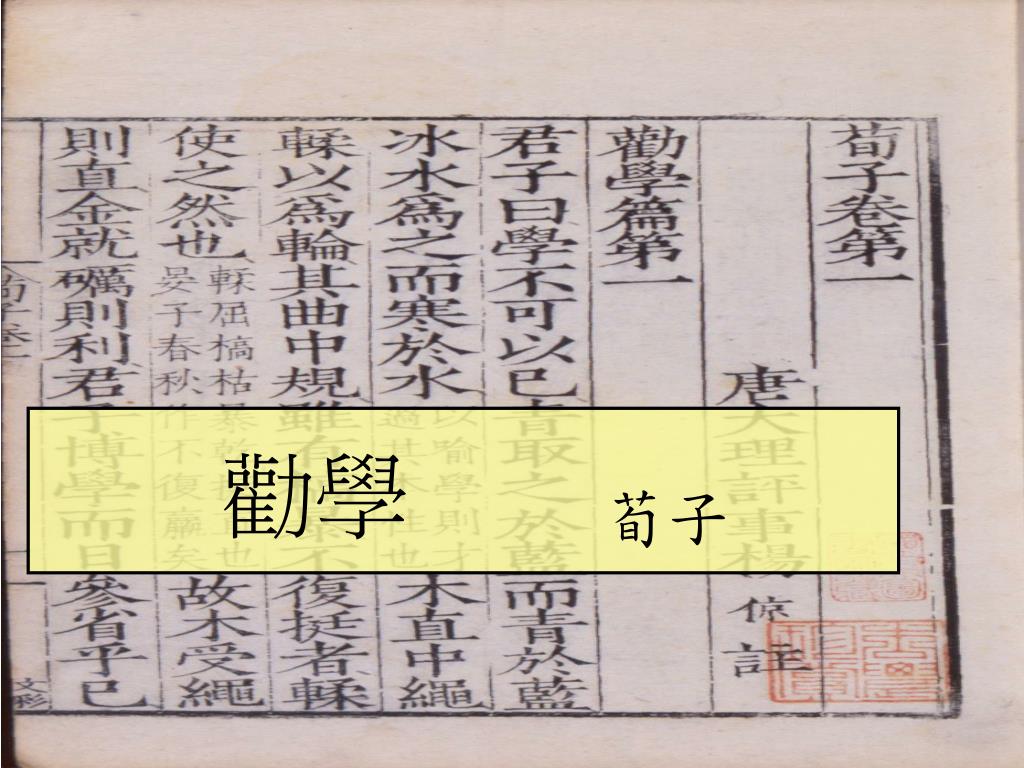 勸學
荀子
荀子卷第一
唐大理評事楊倞註
勸學篇第一
君子曰學不可以已青取之於藍而青於藍
冰水爲之而寒於水以喻學則才過其本性也木直中繩
輮以爲輪其曲中規雖有槁暴不復挺者輮
使之然也輮屈槁枯暴乾挺直也晏子春秋作不復贏矣故木受繩
則直金就礪則利君子博學而日參省乎已